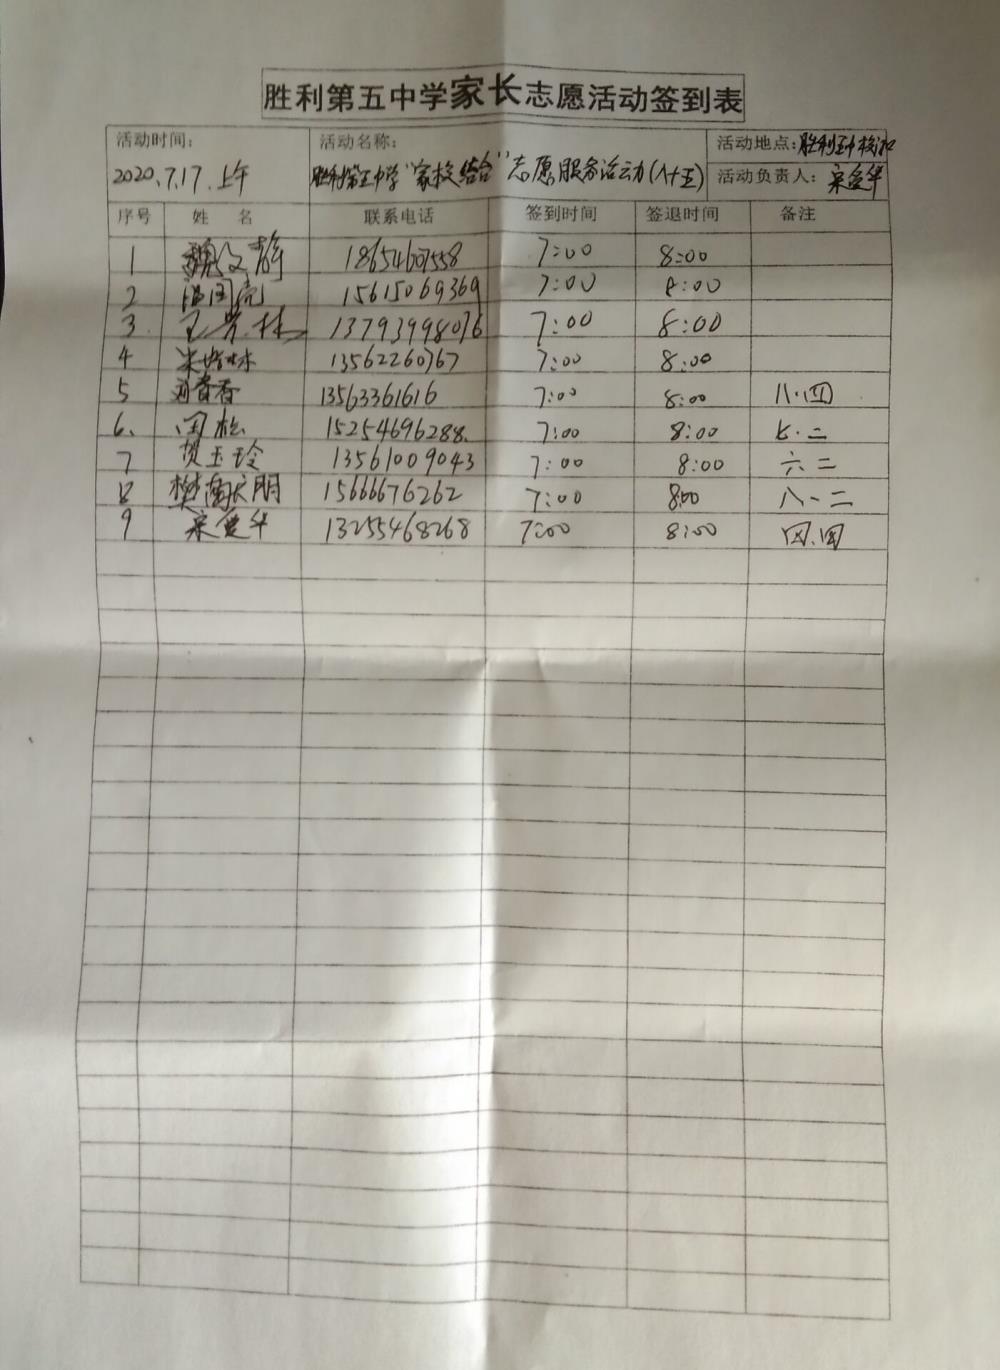 胜利第五中学家长志愿活动签到表
活动时间： 活动名称： 活动地点：胜利五中校门口
2020.7.17.上午 胜利第五中学“家校结合”志愿服务活动(八十五) 活动负责人：宋爱华
序号 姓 名 联系电话 签到时间 签退时间 备注
1 魏文静 18654607558 7:00 8:00
2 国亮 15615069369 7:00 8:00
3. 王芳林 13793998076 7:00 8:00
4 林 13562260767 7:00 8:00
5 香 13563361616 7:00 8:00 八.四
6. 闫松 15254696288. 7:00 8:00 七.二
7 贺玉玲 13561009043 7:00 8:00 六二
8 樊 朋 15666676262 7:00 8:00 八.二
9 宋爱华 13255468268 7:00 8:00 四.四